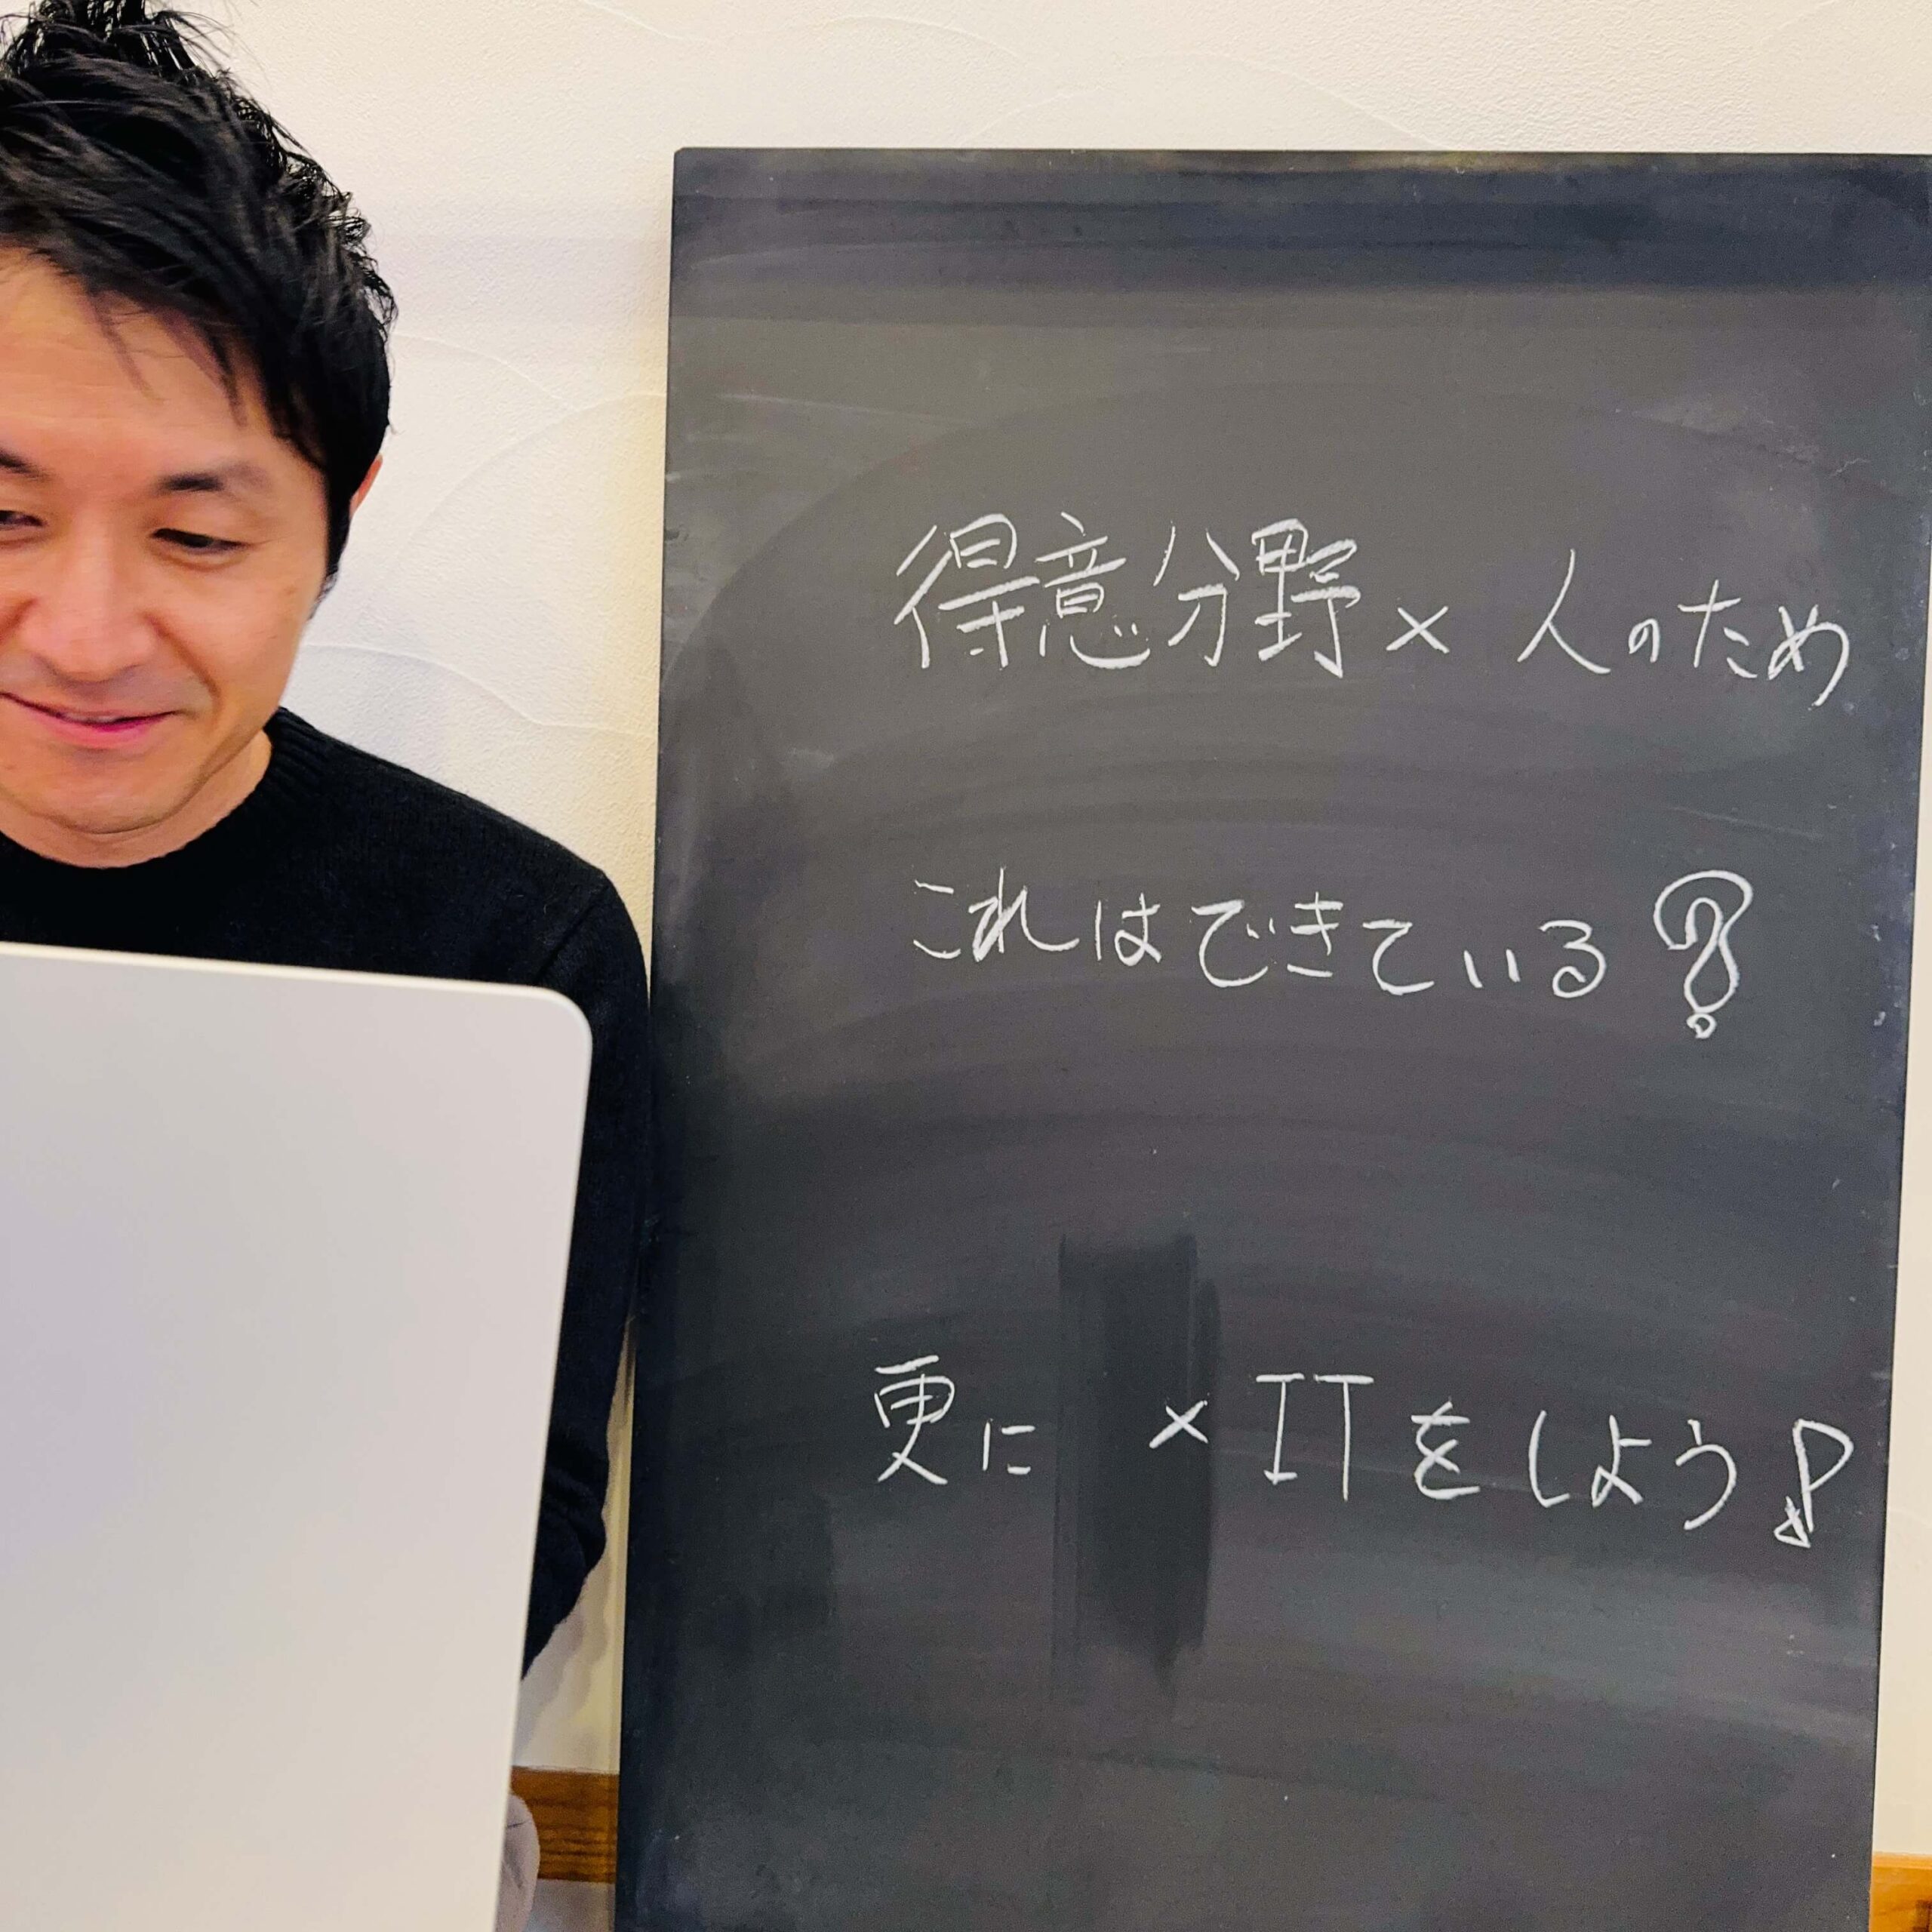 得意分野×人のため
これはできている?
更に ×ITをしよう♪